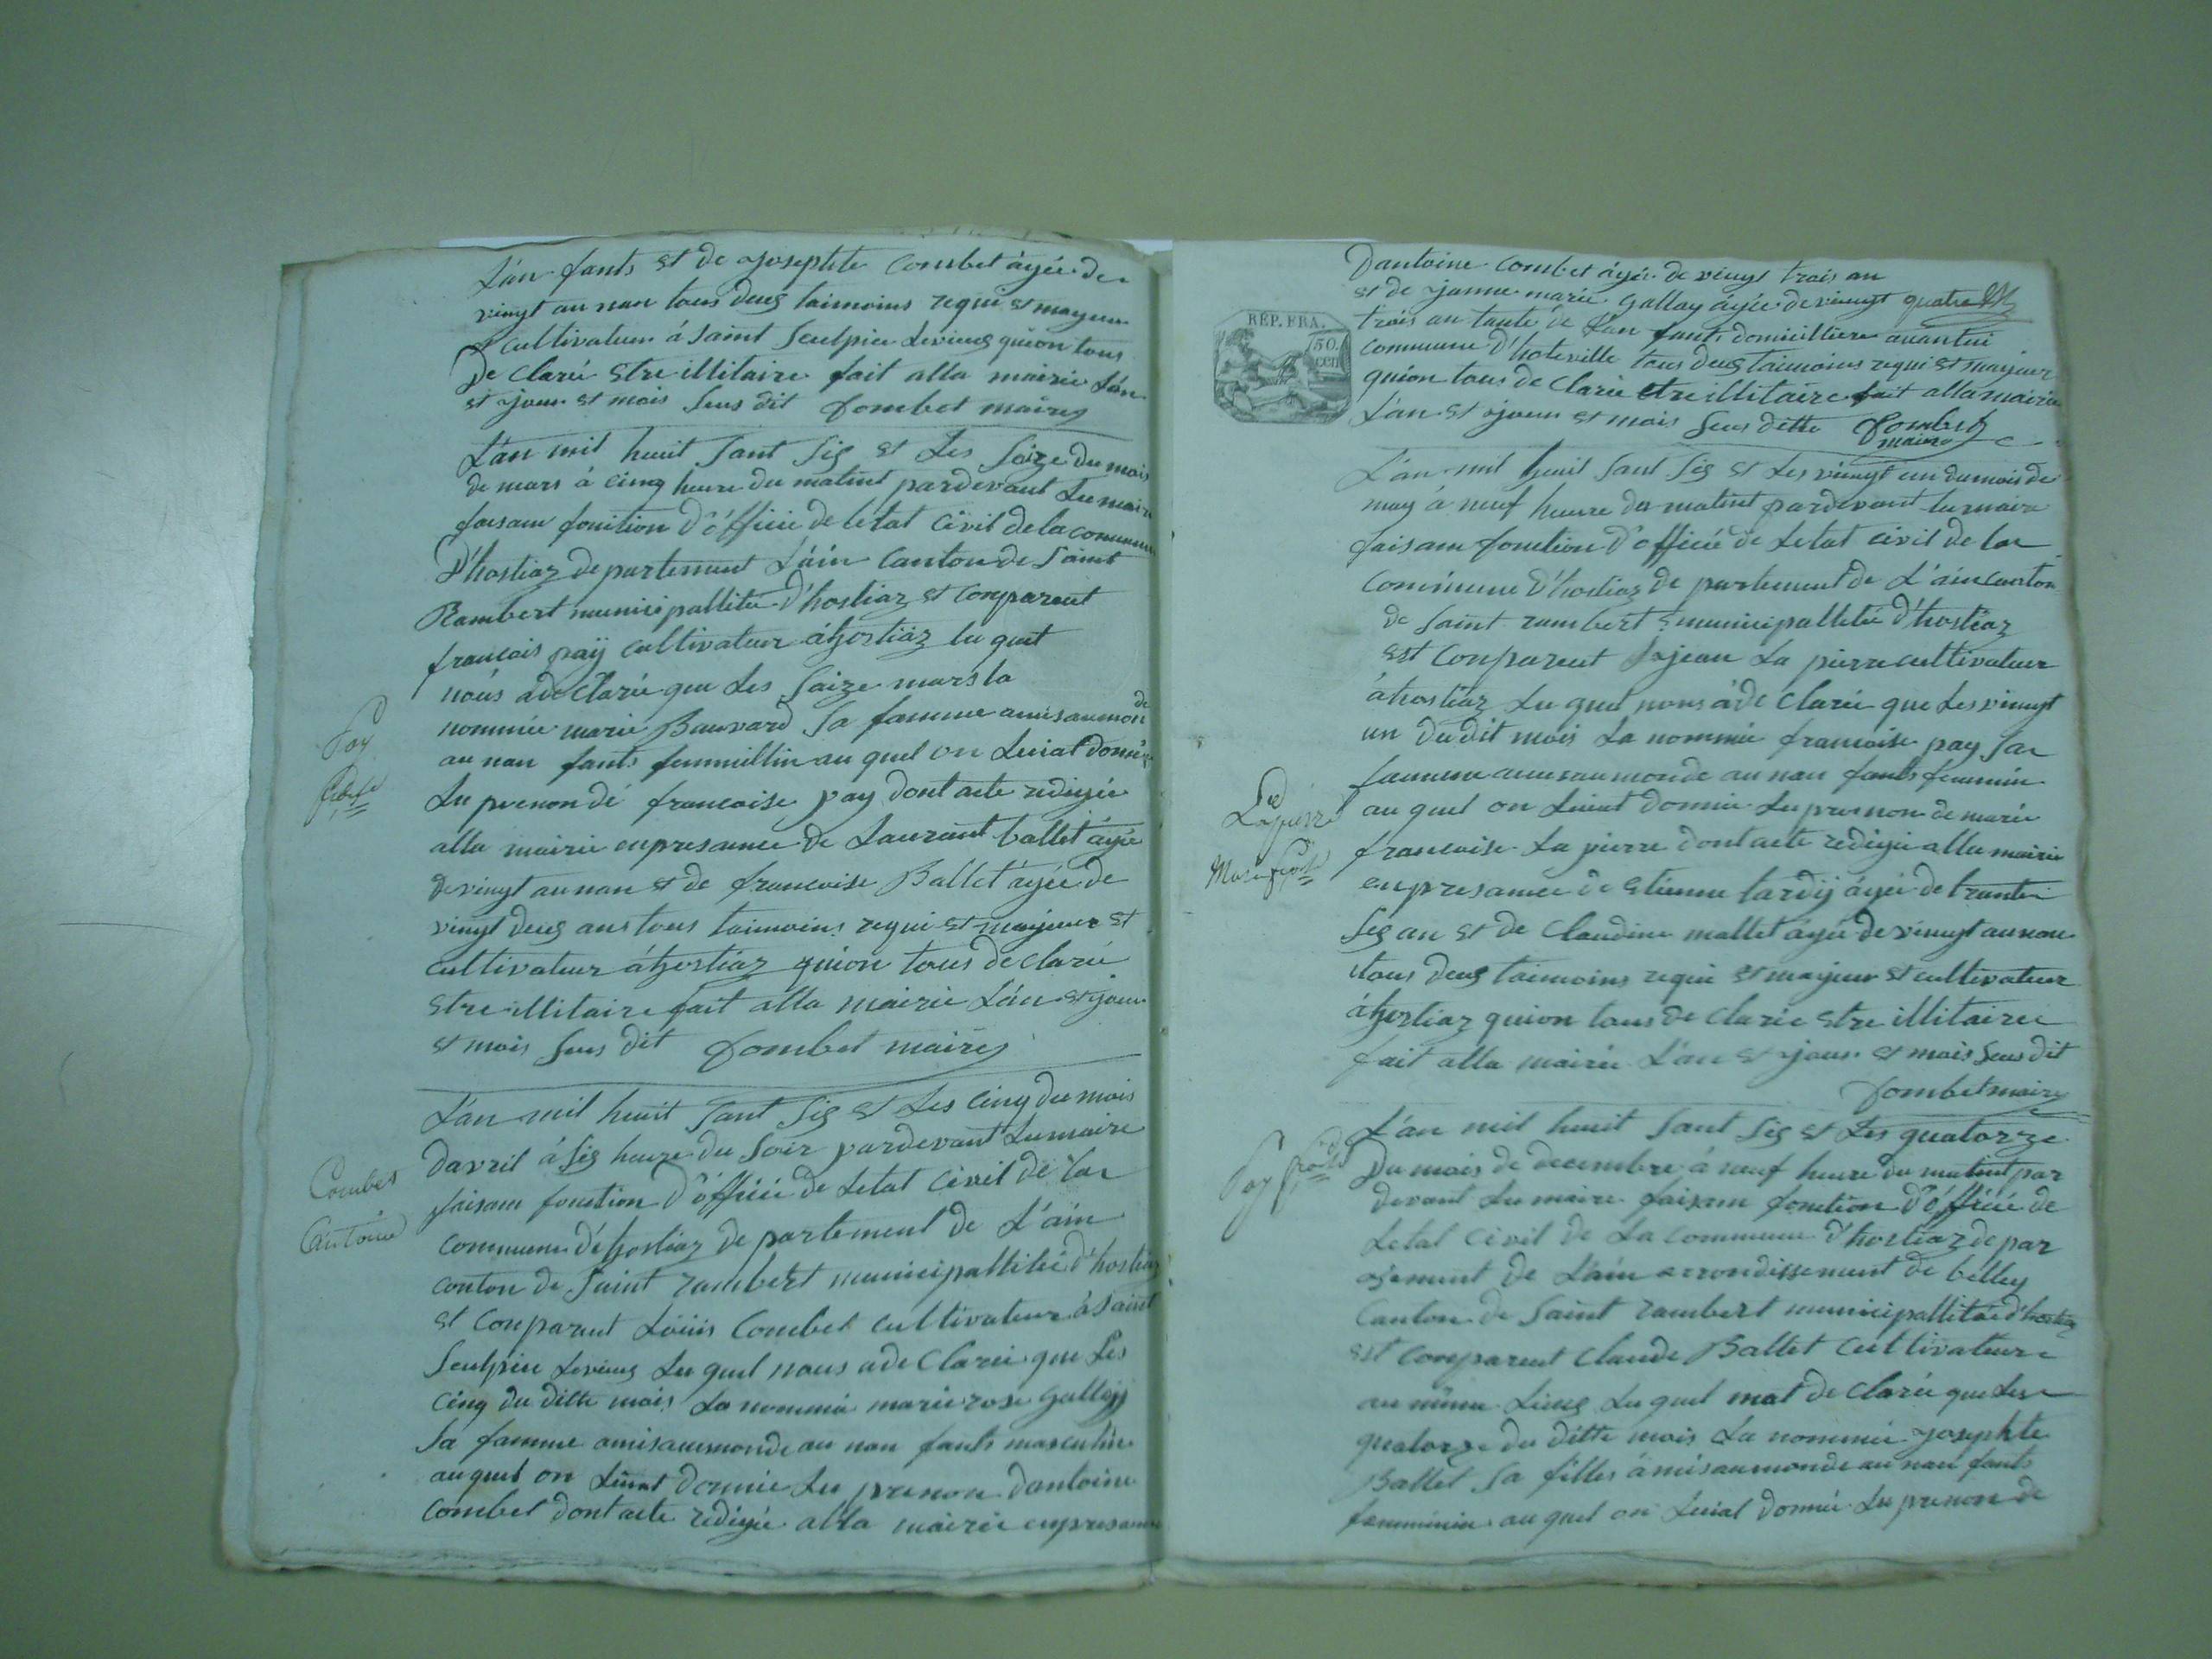 L'án fants et de josephte Combet ágée de
vingt au nan tous deus taimoins requi et mayeur
et cultivateur á Saint Seulpice Levieus quion tous
De Claré etre illitaire fait alla mairie L'án
et jour et mois Sus dit Combet maire
L'án mil huit Sant Sis et Les Saize du mois
de mars á cinq heure du matint pardevant Lu maire
faisam fonition D'óffiié de létat Civil de la commune
D'hostiaz departement L'áin Canton de Saint
Rambert municipallitée D'hostiaz et Conpareut
francois paÿ cultivateur áhostiáz lu quel
nous ade Clarée que Les Saize mars la
nommée marie Bauvard Sa famme amis aumonde
au nan fants femmillin au quel on Luiat donnée
Lu prenon dé francoise pay dont acte redigée
alla mairie enpresance de Laurant ballet ágée
de vingt au nan et de francoise Ballet ágée de
vingt deus ans tous taimoins requi et mayeur et
cultivateur áhostiaz quion tous de clarée
etre illitaire fait alla mairie L'án et jour
et mois Sus dit Combet maire
Pay
fcoise
L'án mil huit Sant Sis et Les cinq du mois
Davril á Sis heure du Soir pardevant Lu maire
faisam fonction D'óffiiée de Letat Civil de la
commune d'éhostiaz de partement de L'ain
conton de Saint rambert municipallitée d'hostiaz
et Conparent Loüis Combet cultivateur á Saint
Seulpice Levieus Lu quel nous ade Clarée que Les
Cinq du ditte mois La nommée marie rose galleÿ
Sa famme amisaumonde au nan fants masculin
au quel on Luiat donnée Lu prenon dantoine
Combet dont acte redigée alla mairie enpresance
Combet
Antoine
Dantoine Combet ágée de vingt trois an
et de janne marie gallay ágée de vinngt quatre
trois an tante de L'an fants domicilliere auantui
REP. FRA.
50.
cen
commune D'hoteville tous deus taimoins requi et mayeur
quion tous de Clarée etre illitaire fait alla mairie
L'an et jour et mois Sus ditte Combet
maire
L'an mil huit Sant Sis et Les vingt un du mois de
may á neuf heure du matint pardevant lu maire
faisam fonction D'officiée de Letat civil de la
commune D'hostiaz de partement de L'ain canton
de Saint rambert municipallitée d'hostiaz
est Conparent jean La pierre cultivateur
áhostiáz Lu quel nous áde Clarée que Les vinngt
un du dit mois La nommée francoise pay Sa
famme amisaumonde au nan fants feminin
au quel on Luiat donnée Lu prenon de marie
francoise La pierre dont acte redigée alla mairie
enpresance de etienne tardÿ ágée de trante
Sis an et de Claudine mallet ágée de vinngt au nan
tous deus taimoins requi et mayeur et cultivateur
áhostiaz quion tous de Clarée etre illitaire
fait alla mairie L'an et jour et mois Sus dit
Combet maire
Lapierre
Marie fcoise
L'an mil huit Sant Sis et Les quatorze
Du mois de decembre á neuf heure du matint par
devant Lu maire faisam fonction D'óffiiée de
Letat Civil de La commune D'hostiaz de par
tement de L'ain arrondissement de belley
Canton de Saint rambert municipallitée d'hostiaz
est Conparent Claude Ballet Cultivateur
au même Lieus Lu quel mat de Clarée que Les
quatorze du ditte mois La nommée josephte
Ballet Sa filles ámisaumonde au nan fants
femminin au quel on Luiat donnée Lu prenon de